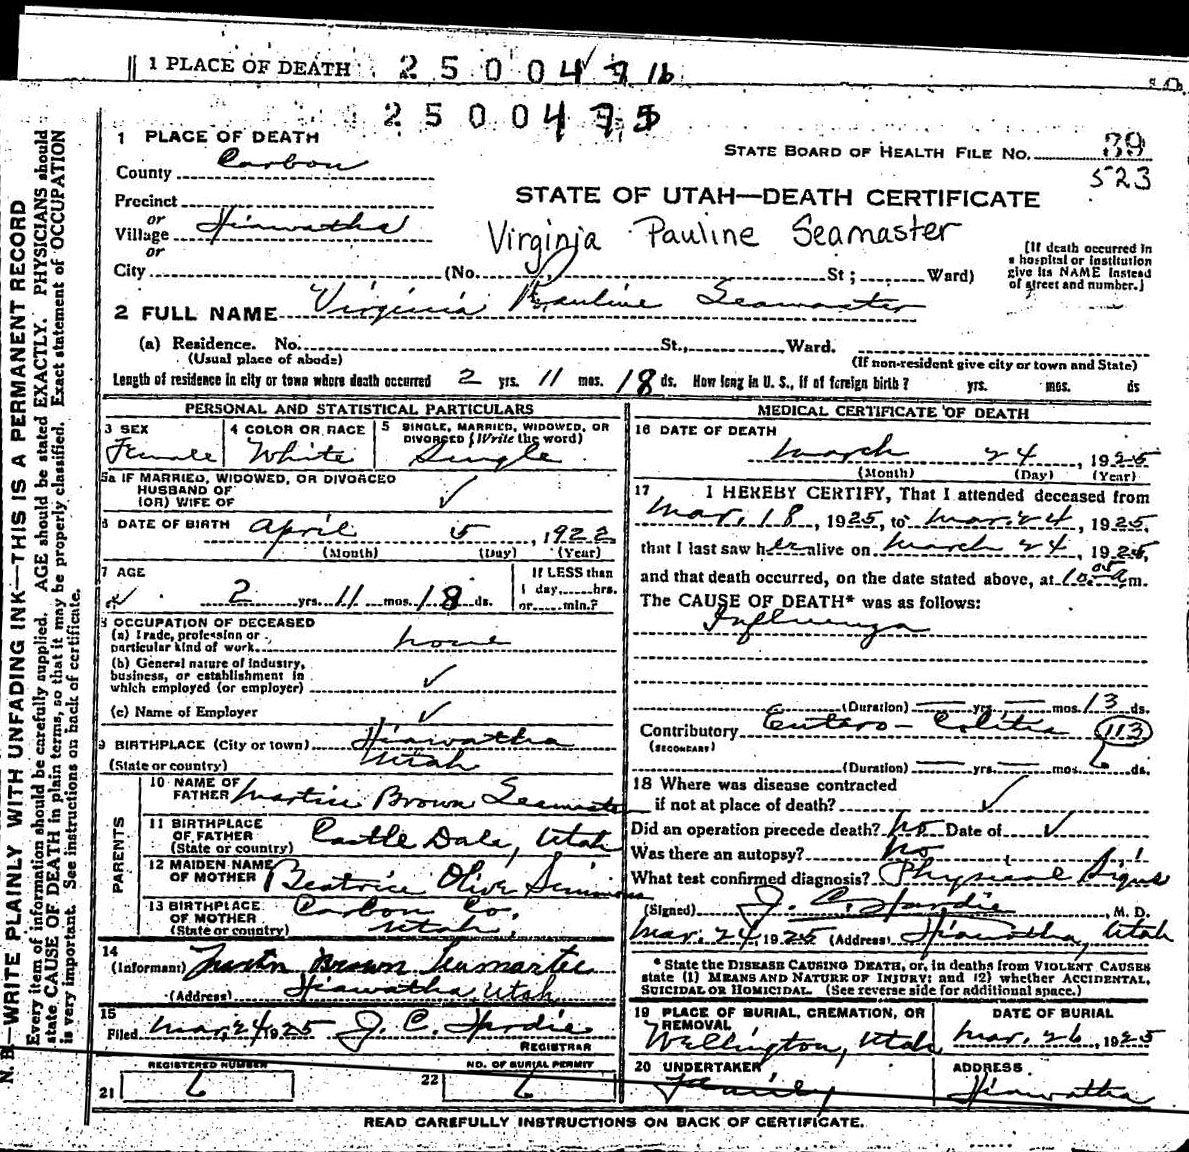 1 PLACE OF DEATH 2 5 0 0 4 7 16
2 5 0 0 4 7 5
1 PLACE OF DEATH
STATE BOARD OF HEALTH FILE NO. 39
523
County Carbon
STATE OF UTAH—DEATH CERTIFICATE
Precinct
or
Village Hiawatha
or
Virginia Pauline Seamaster
City (No. St; Ward)
[If death occurred in
a hospital or institution
give its NAME instead
of street and number.]
2 FULL NAME Virginia Pauline Seamaster
(a) Residence. No. St., Ward.
(Usual place of abode)
(If non-resident give city or town and State)
Length of residence in city or town where death occurred 2 yrs. 11 mos. 18 ds. How long in U. S., if of foreign birth? yrs. mos. ds
PERSONAL AND STATISTICAL PARTICULARS
3 SEX Female
4 COLOR OR RACE White
5 SINGLE, MARRIED, WIDOWED, OR
DIVORCED (Write the word)
Single
5a IF MARRIED, WIDOWED, OR DIVORCED
HUSBAND OF
(OR) WIFE OF ✓
6 DATE OF BIRTH April 5, 1922
(Month) (Day) (Year)
7 AGE
2 yrs. 11 mos. 18 ds.
If LESS than
1 day,......hrs.
or......min.?
8 OCCUPATION OF DECEASED
(a) Trade, profession or
particular kind of work none
(b) General nature of industry,
business, or establishment in
which employed (or employer) ✓
(c) Name of Employer ✓
9 BIRTHPLACE (City or town) Hiawatha
(State or country) Utah
PARENTS
10 NAME OF
FATHER Martin Brown Seamaster
11 BIRTHPLACE
OF FATHER
(State or country) Castle Dale, Utah
12 MAIDEN NAME
OF MOTHER Beatrice Olive Simmons
13 BIRTHPLACE
OF MOTHER
(State or country) Carbon Co. Utah,
14
(Informant) Martin Brown Seamaster
(Address) Hiawatha, Utah
15
Filed Mar. 24 1925 J. C. Hardie
REGISTRAR
REGISTERED NUMBER
21 6
NO. OF BURIAL PERMIT
22 6
MEDICAL CERTIFICATE OF DEATH
16 DATE OF DEATH
March 24, 1925
(Month) (Day) (Year)
17 I HEREBY CERTIFY, That I attended deceased from
Mar. 18, 1925, to Mar. 24, 1925,
that I last saw her alive on March 24, 1925,
and that death occurred, on the date stated above, at 10:05 a m.
The CAUSE OF DEATH* was as follows:
Influenza
(Duration) — yrs. — mos. 13 ds.
Contributory Entero-Colitis 113
(SECONDARY)
(Duration) — yrs. — mos. 6 ds.
18 Where was disease contracted
if not at place of death? ✓
Did an operation precede death? No Date of ✓
Was there an autopsy? No
What test confirmed diagnosis? Physical Signs
(Signed) J. C. Hardie, M. D.
Mar. 24 1925 (Address) Hiawatha, Utah
* State the DISEASE CAUSING DEATH, or, in deaths from VIOLENT CAUSES
state (1) MEANS AND NATURE OF INJURY; and (2) whether ACCIDENTAL,
SUICIDAL OR HOMICIDAL. (See reverse side for additional space.)
19 PLACE OF BURIAL, CREMATION, OR
REMOVAL
Wellington, Utah
DATE OF BURIAL
Mar. 26, 1925
20 UNDERTAKER
Family
ADDRESS
Hiawatha
READ CAREFULLY INSTRUCTIONS ON BACK OF CERTIFICATE.
N. B.—WRITE PLAINLY WITH UNFADING INK—THIS IS A PERMANENT RECORD
Every item of information should be carefully supplied. AGE should be stated EXACTLY. PHYSICIANS should
state CAUSE OF DEATH in plain terms, so that it may be properly classified. Exact statement of OCCUPATION
is very important. See instructions on back of certificate.